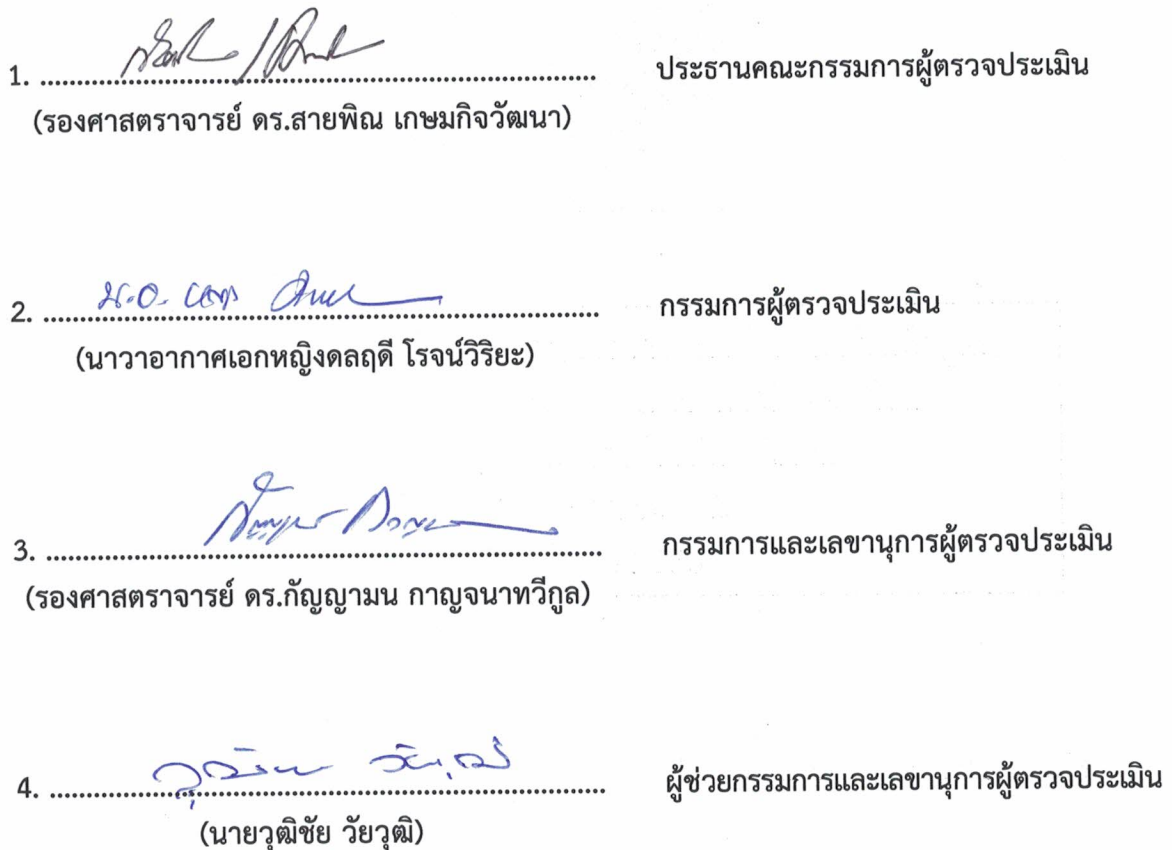 1. ............................................ ประธานคณะกรรมการผู้ตรวจประเมิน
(รองศาสตราจารย์ ดร.สายพิณ เกษมกิจวัฒนา)
2. น.อ. ............................................ กรรมการผู้ตรวจประเมิน
(นาวาอากาศเอกหญิงดลฤดี โรจน์วิริยะ)
3. ............................................ กรรมการและเลขานุการผู้ตรวจประเมิน
(รองศาสตราจารย์ ดร.กัญญามน กาญจนาทวีกูล)
4. ............................................ ผู้ช่วยกรรมการและเลขานุการผู้ตรวจประเมิน
(นายวุฒิชัย วัยวุฒิ)